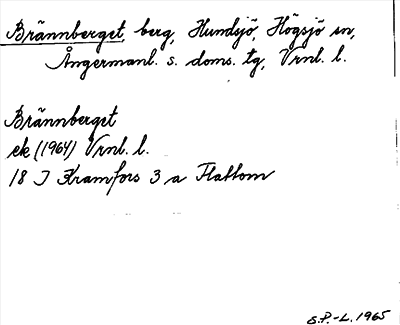 Brännberget, berg, Hundsjö, Högsjö sn,
Ångermanl. s. doms. tg, Vrnl. l.
Brännberget
ek (1964) Vrnl. l.
18 J Kramfors 3 a Flattom
S.P.-L. 1965